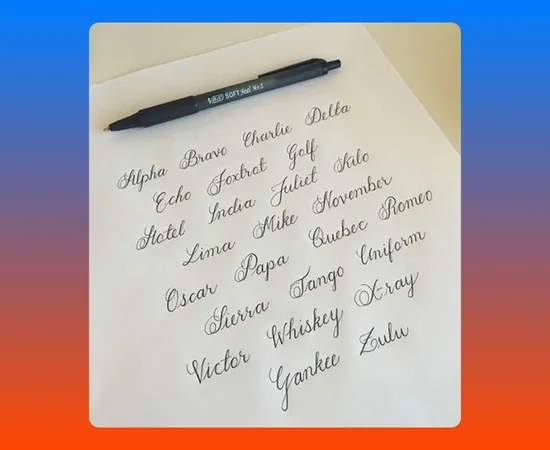 BIC SOFT Feel Med.
Alpha Bravo Charlie Delta
Echo Foxtrot Golf
Hotel India Juliet Kilo
Lima Mike November
Oscar Papa Quebec Romeo
Sierra Tango Uniform
Victor Whiskey Xray
Yankee Zulu